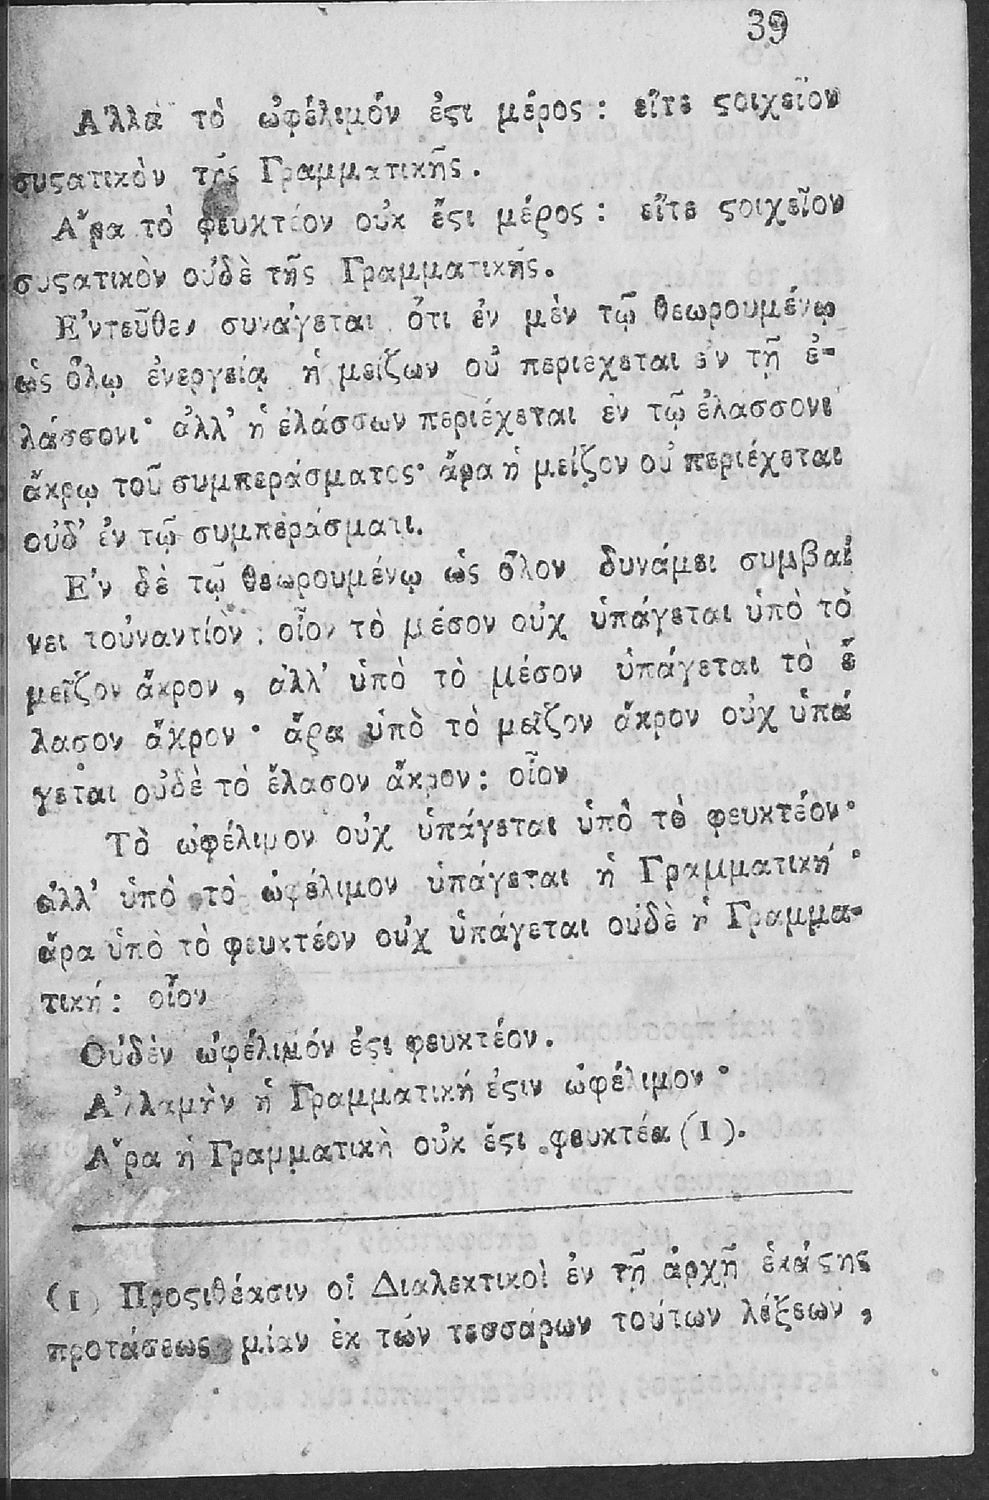 39
Α'λλὰ τὸ ὠφέλιμόν ἐϛι μέρος : εἴτε ϛοιχεῖον
συϛατικὸν τῆς Γραμματικῆς .
Α"ρα τὸ φευκτέον οὐκ ἔϛι μέρος : εἴτε ϛοιχεῖον
συϛατικὸν οὐδὲ τῆς Γραμματικῆς.
Ε'ντεῦθεν συνάγεται ὅτι ἐν μὲν τῷ θεωρουμένῳ
ὡς ὅλῳ ἐνεργείᾳ ἡ μείζων οὐ περιέχεται ἐν τῇ ἐ-
λάσσονι· ἀλλ' ἡ ἐλάσσων περιέχεται ἐν τῷ ἐλασσονι
ἄκρῳ τοῦ συμπεράσματος· ἄρα ἡ μείζον οὐ περιέχεται
οὐδ' ἐν τῷ συμπεράσματι.
Ε'ν δὲ τῷ θεωρουμένῳ ὡς ὅλον δυνάμει συμβαί
νει τοὐναντίον : οἷον τὸ μέσον οὐχ ὑπάγεται ὑπὸ τὸ
μεῖζον ἄκρον , ἀλλ' ὑπὸ τὸ μέσον ὑπάγεται τὸ ἔ
λασον ἄκρον · ἄρα ὑπὸ τὸ μεῖζον ἄκρον οὐχ ὑπά
γεται οὐδὲ τὸ ἔλασον ἄκρον : οἷον
Τὸ ὠφέλιμον οὐχ ὑπάγεται ὑπὸ τὸ φευκτέον·
ἀλλ' ὑπὸ τὸ ὠφέλιμον ὑπάγεται ἡ Γραμματική ·
ἄρα ὑπὸ τὸ φευκτέον οὐχ ὑπάγεται οὐδὲ ἡ Γραμμα-
τική : οἷον
Οὐδὲν ὠφέλιμόν ἐϛι φευκτέον.
Α'λλαμὴν ἡ Γραμματική ἐϛιν ὠφέλιμον ·
Α"ρα ἡ Γραμματικὴ οὐκ ἔϛι φευκτέα (1).
(1) Προϛιθέασιν οἱ Διαλεκτικοὶ ἐν τῇ ἀρχῇ ἑκάϛης
προτάσεως μίαν ἐκ τῶν τεσσάρων τούτων λέξεων ,